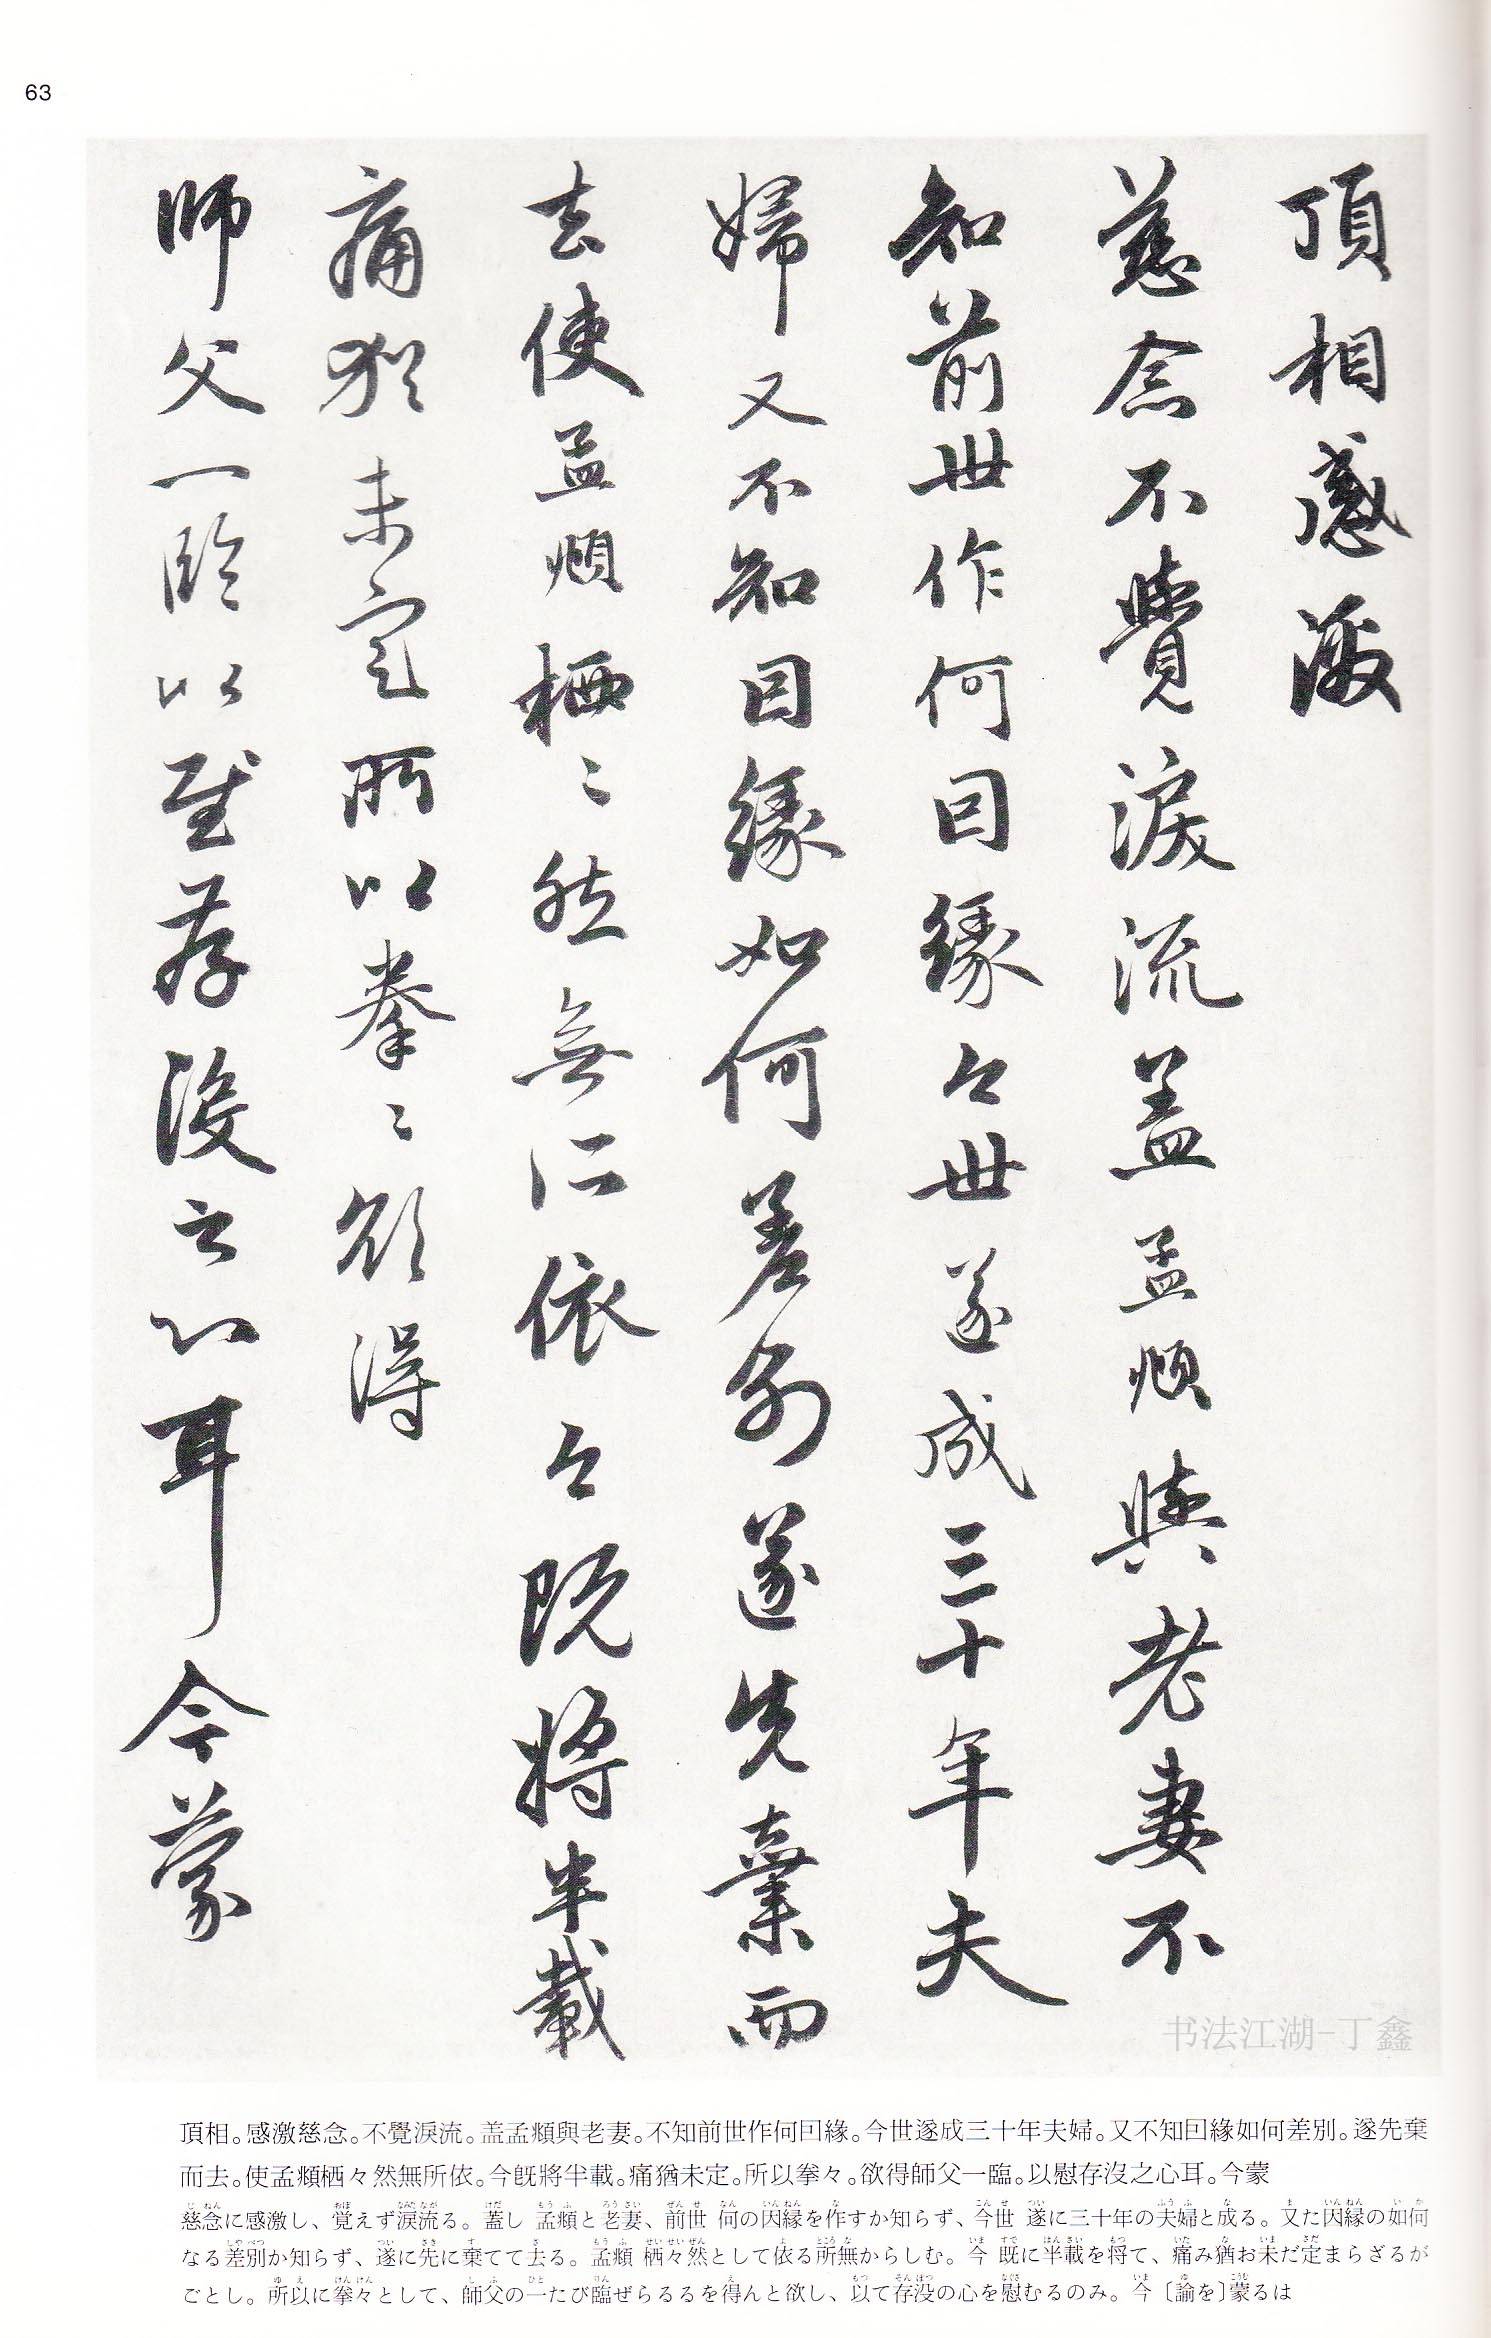 63
頂相感激
慈念不覺淚流盖孟頫與老妻不
知前世作何因緣今世遂成三十年夫
婦又不知因緣如何差別遂先棄而
去使孟頫栖〻然無所依今既將半載
痛猶未定所以拳〻欲得
師父一臨以慰存沒之心耳今蒙
书法江湖-丁鑫
頂相。感激慈念。不覺淚流。盖孟頫與老妻。不知前世作何囙緣。今世遂成三十年夫婦。又不知囙緣如何差別。遂先棄
而去。使孟頫栖々然無所依。今旣將半載。痛猶未定。所以拳々。欲得師父一臨。以慰存沒之心耳。今蒙
慈念に感激し、覚えず涙流る。蓋し 孟頫と老妻、前世 何の因縁を作すか知らず、今世 遂に三十年の夫婦と成る。又た因縁の如何
なる差別か知らず、遂に先に棄てて去る。孟頫 栖々然として依る所無からしむ。今 既に半載を将て、痛み猶お未だ定まらざるが
ごとし。所以に拳々として、師父の一たび臨ぜらるるを得んと欲し、以て存没の心を慰むるのみ。今〔諭を〕蒙るは